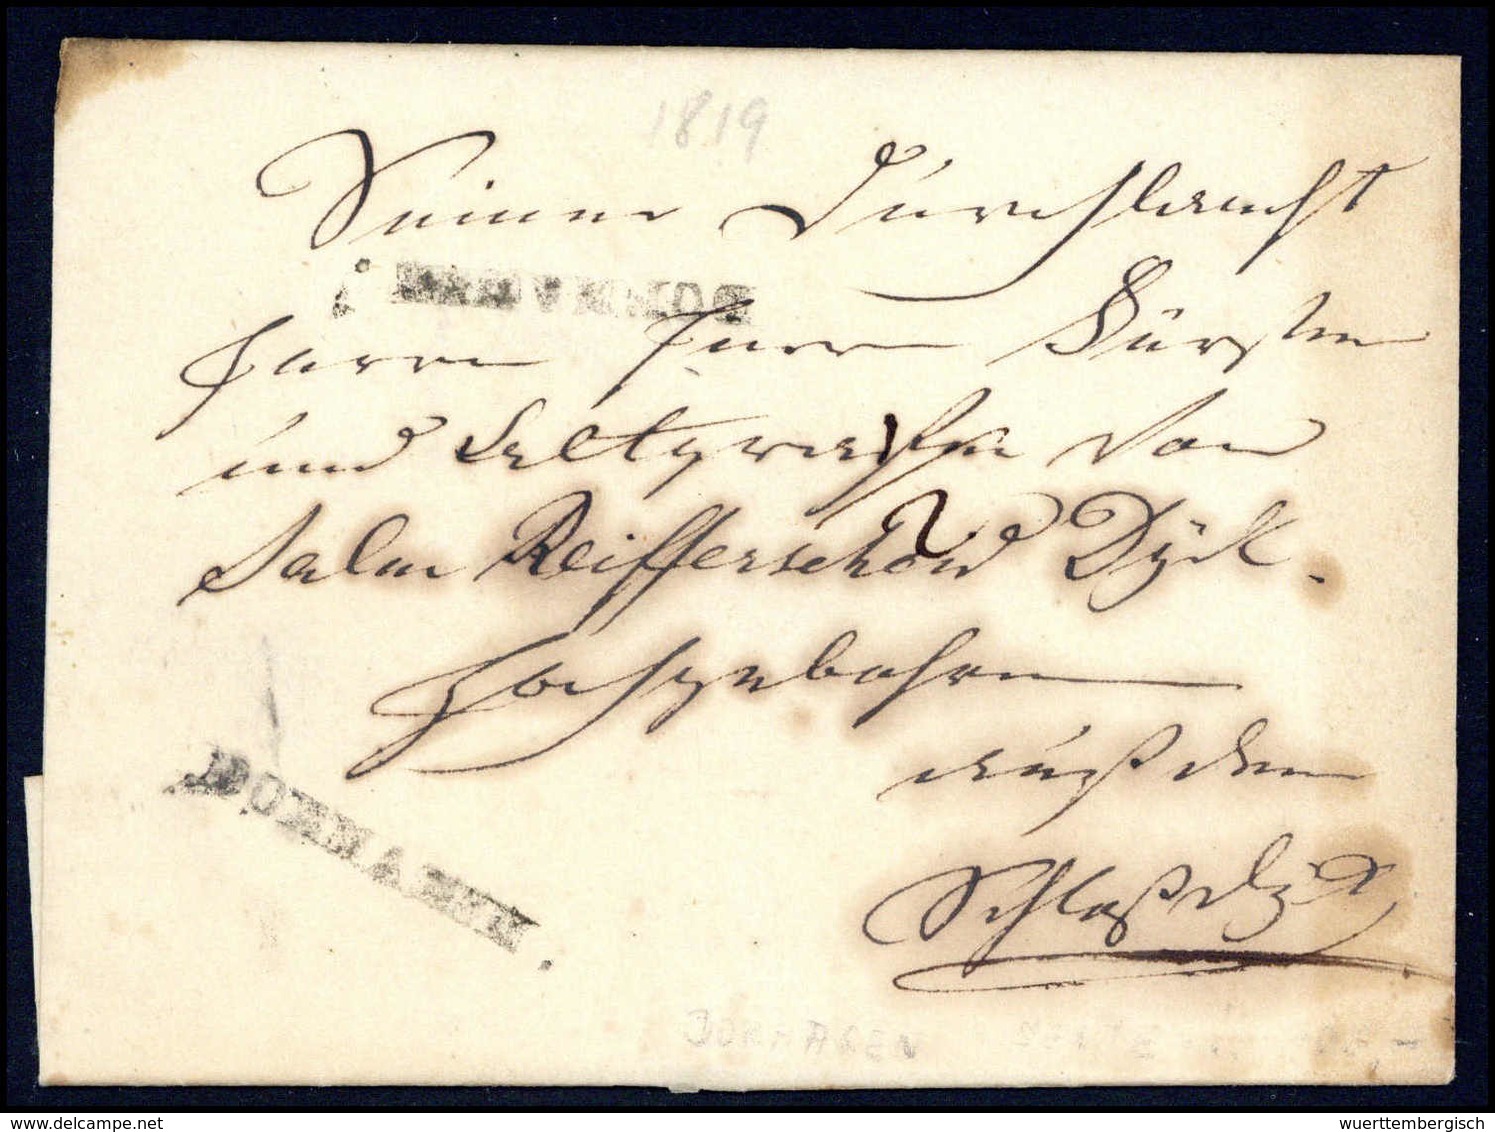 1819
Seiner Durchlaucht
DORMAGEN.
Herrn Herrn Fürsten
und Altgrafen von
Salm Reifferscheid Dÿck.
Hochgebohren
auf dem
Schloß Dÿck
DORMAGEN.
DORMAGEN
delcampe.net
wuerttembergisch